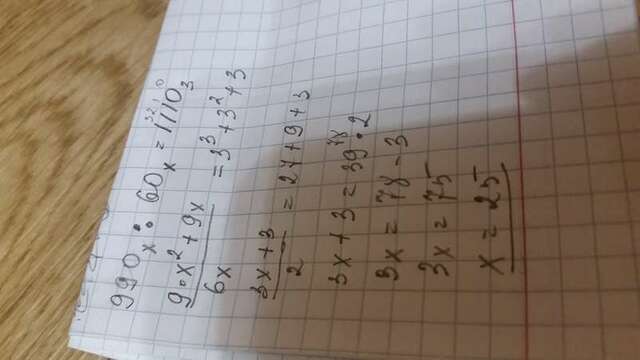 990ₓ : 60ₓ = 1110₃
3 2 1 0
9·x² + 9x / 6x = 3³ + 3² + 3
3x + 3 / 2 = 27 + 9 + 3
3x + 3 = 39 · 2
78
3x = 78 - 3
3x = 75
x = 25